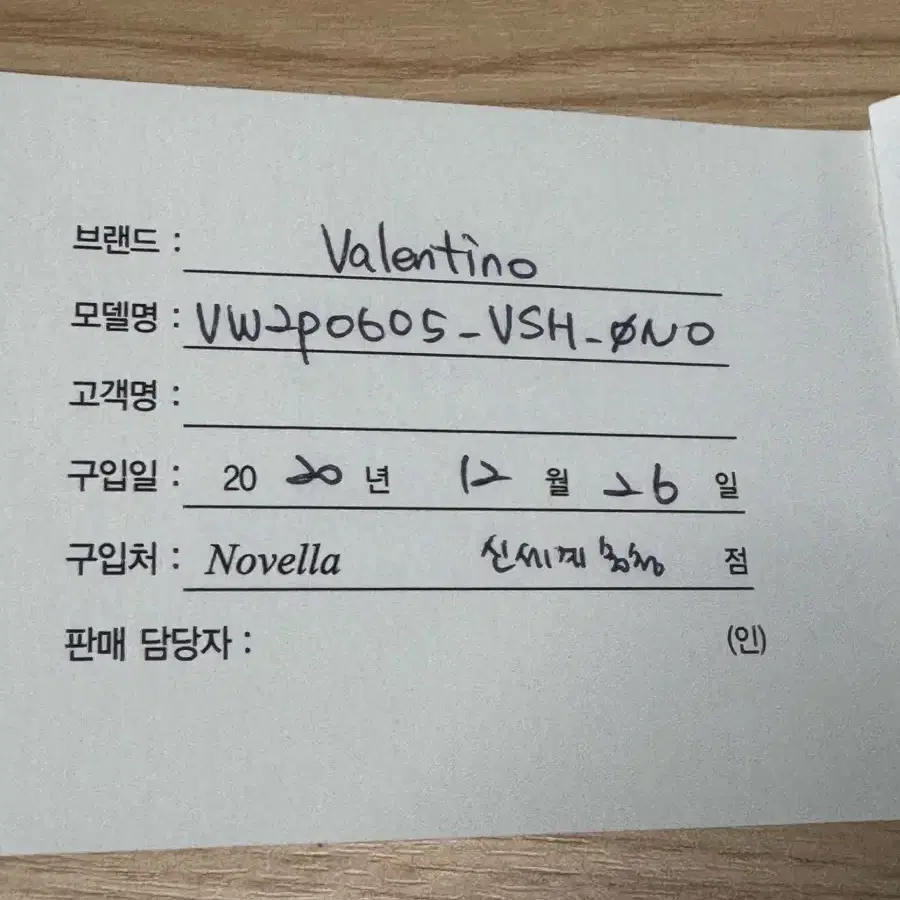 브랜드 : Valentino
모델명 : VW2P0605-VSH-ØNO
고객명 :
구입일 : 20 20 년 12 월 26 일
구입처 : Novella 신세계 충청 점
판매 담당자 : (인)